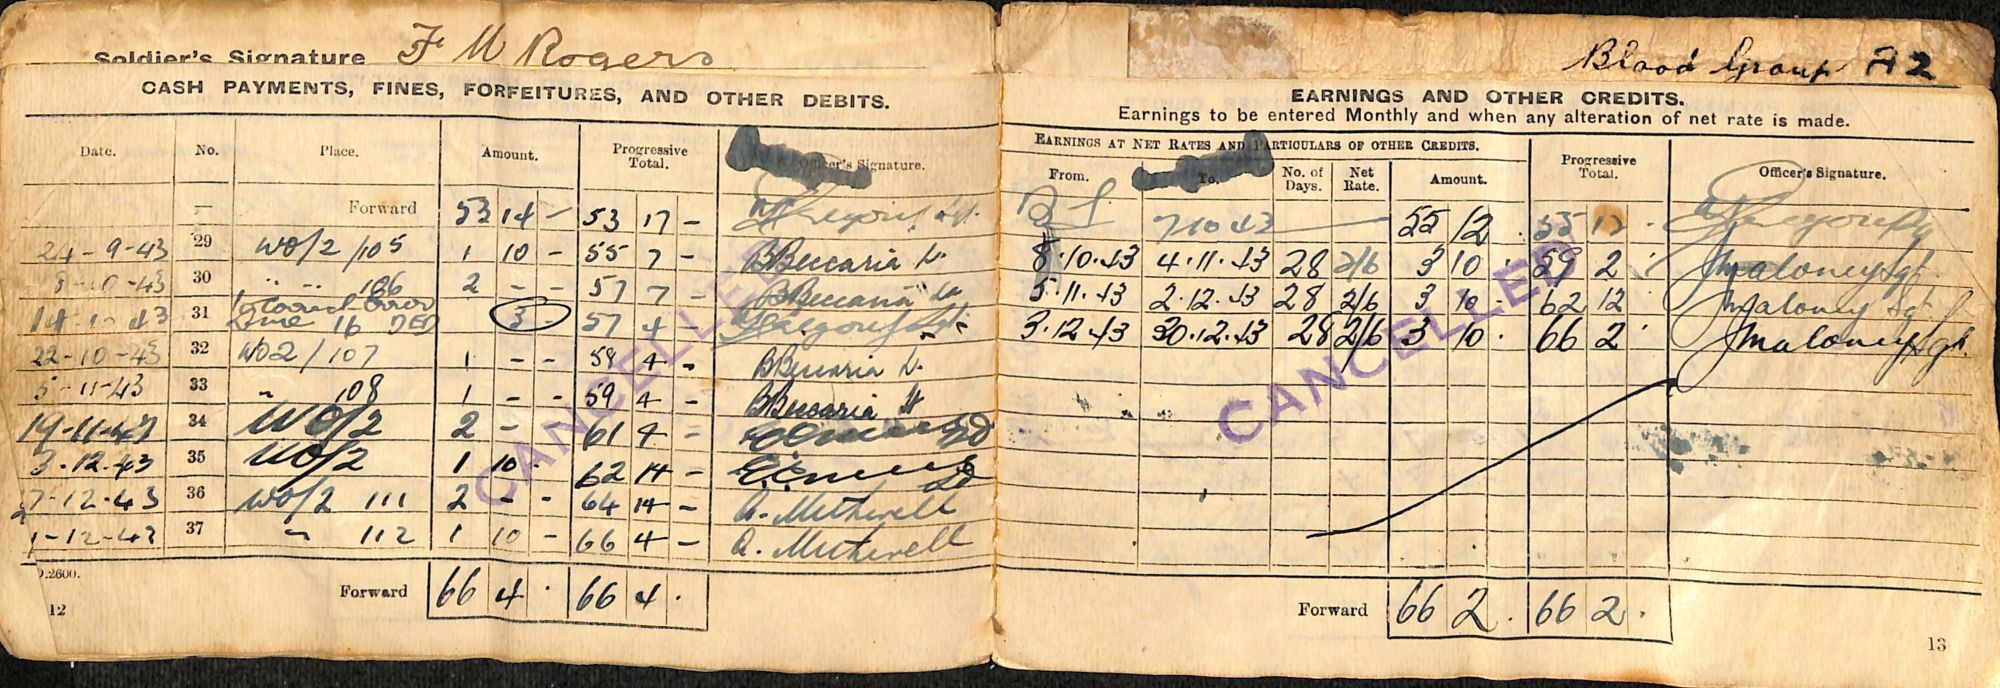 Soldier's Signature F M Rogers
CASH PAYMENTS, FINES, FORFEITURES, AND OTHER DEBITS.
Date. No. Place. Amount. Progressive Total. Officer's Signature.
Forward 53 14 - 53 17 -
24-9-43 29 WO/2 /105 1 10 - 55 7 - B Beccaria Lt.
8-10-43 30 " " 106 2 - - 57 7 - B Beccaria Lt
14-10-43 31 to correct error line 16 DED 3 57 4 -
22-10-43 32 WO2/107 1 - - 58 4 - B Beccaria Lt.
5-11-43 33 " 108 1 - - 59 4 - B Beccaria Lt
19-11-43 34 WO/2 2 - 61 4 -
3.12.43 35 WO/2 1 10. 62 14 -
36 WO/2 111 2 - - 64 14 - A. Methvell
37 " 112 1 10 - 66 4 - A. Methvell
D.2600.
Forward 66 4 . 66 4 .
12
Blood Group A2
EARNINGS AND OTHER CREDITS.
Earnings to be entered Monthly and when any alteration of net rate is made.
EARNINGS AT NET RATES AND PARTICULARS OF OTHER CREDITS.
From. To. No. of Days. Net Rate. Amount. Progressive Total. Officer's Signature.
7 10 43 55 12 55 12
8.10.43 4.11.43 28 2/6 3 10 . 59 2 . J Maloney Sgt
5.11.43 2.12.43 28 2/6 3 10 . 62 12 J Maloney Sgt.
3.12.43 30.12.43 28 2/6 3 10. 66 2 J Maloney Sgt.
Forward 66 2 . 66 2 .
13
CANCELLED
CANCELLED